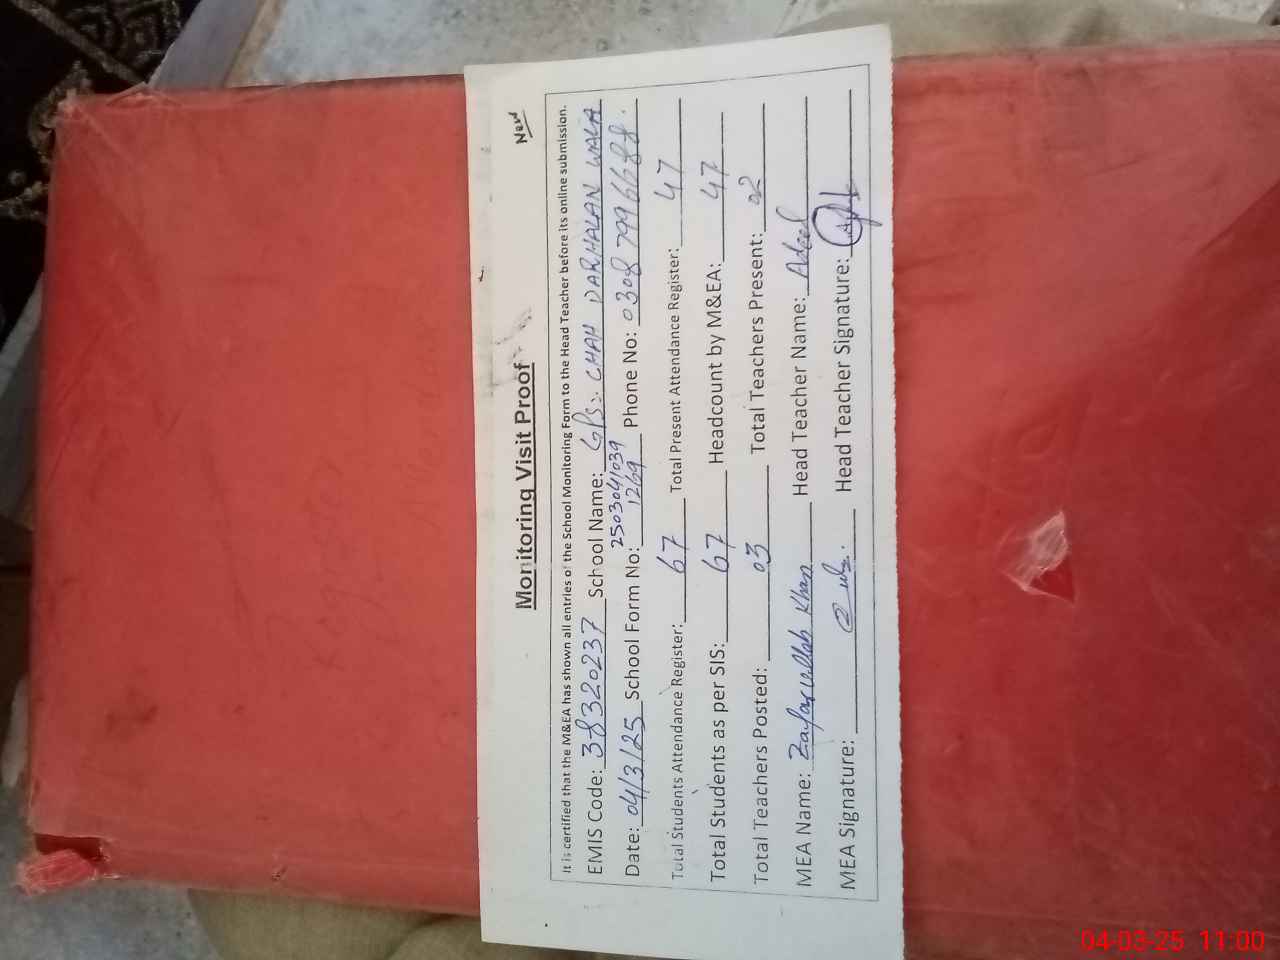 New
Monitoring Visit Proof
It is certified that the M&EA has shown all entries of the School Monitoring Form to the Head Teacher before its online submission.
EMIS Code: 38320237 School Name: GPS:- CHAH DARHALAN WALA
Date: 04/3/25 School Form No: 25030410391269 Phone No: 0308 7996688.
Total Students Attendance Register: 67 Total Present Attendance Register: 47
Total Students as per SIS: 67 Headcount by M&EA: 47
Total Teachers Posted: 03 Total Teachers Present: 02
MEA Name: Zafarullah Khan Head Teacher Name: Adeel
MEA Signature: Head Teacher Signature:
04-03-25 11:00